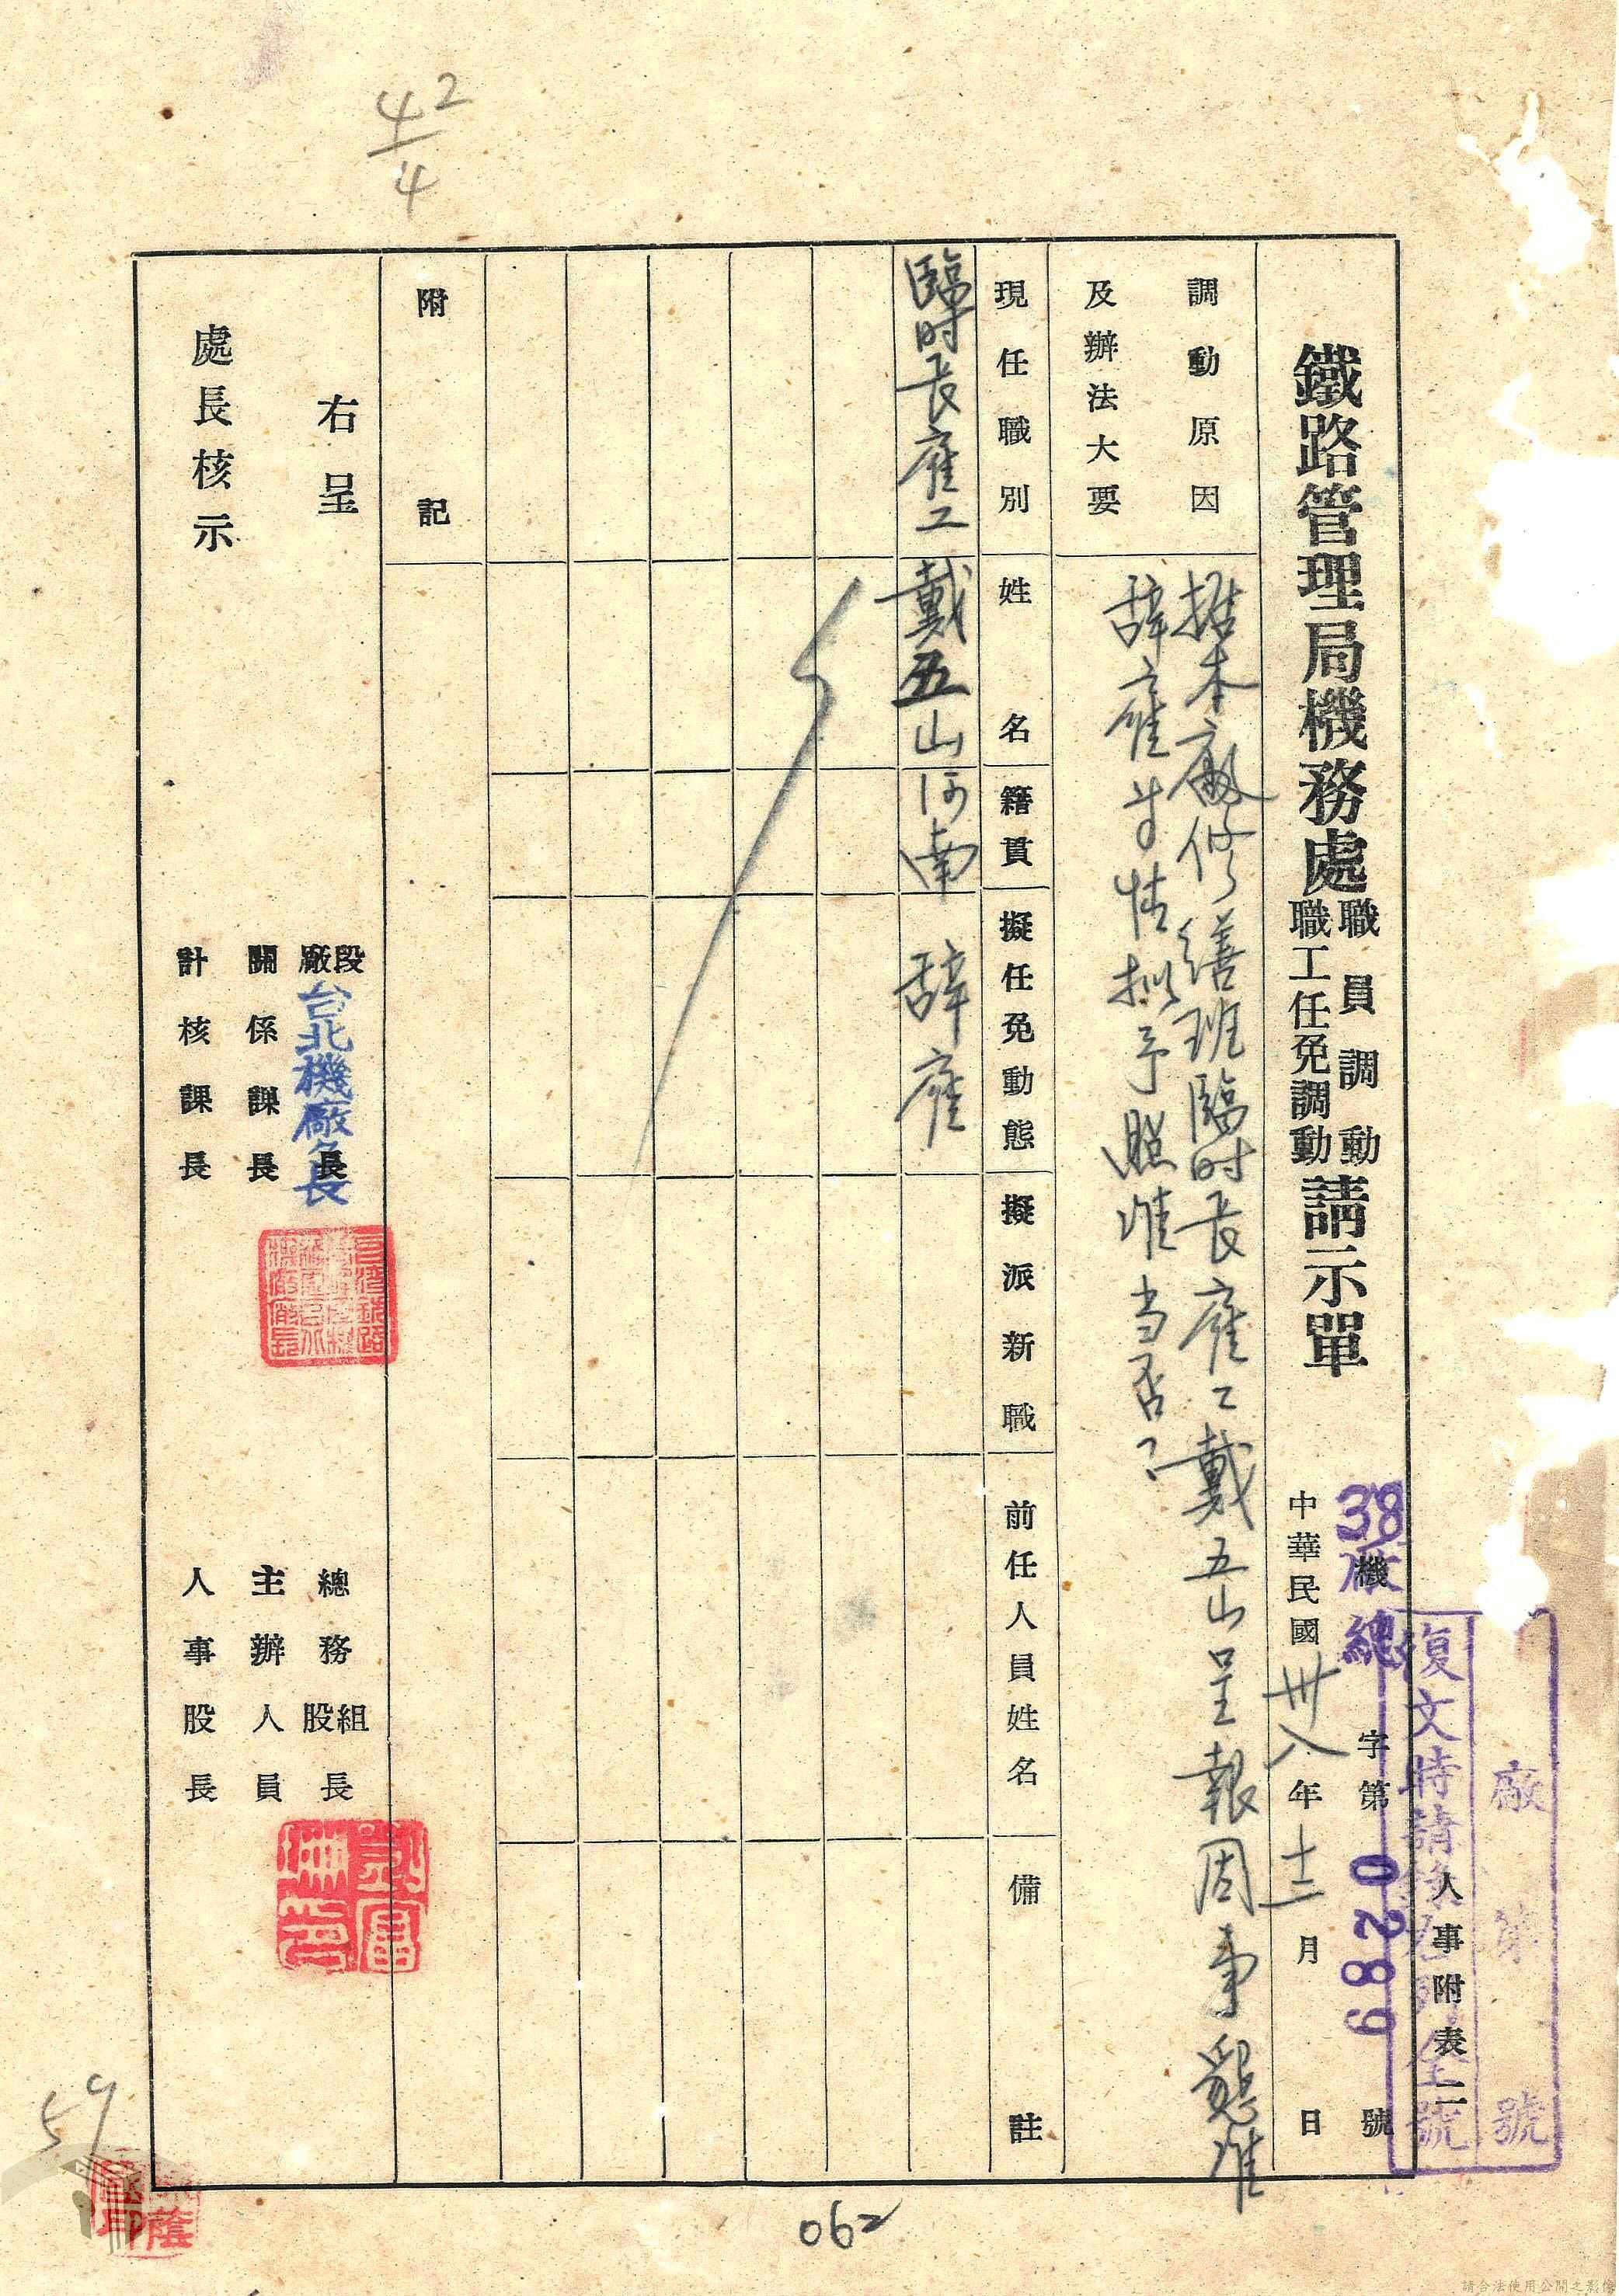 4 2/4
人事附表二
廠 第 號
復文時請 號
鐵路管理局機務處職員調動職工任免調動請示單
38機廠總字第02889號
中華民國卅八年十二月 日
調動原因及辦法大要
據本廠修繕班臨時長雇工戴五山呈報因事懇准
辞雇等情擬予照准当否乞
現任職別
姓名
籍貫
擬任免動態
擬派新職
前任人員姓名
備註
臨時長雇工
戴五山
河南
辞雇
附記
右呈
處長核示
段廠長
台北機廠
關係課長
計核課長
總務組股長
主辦人員
人事股長
59
062
請合法使用公開之影像